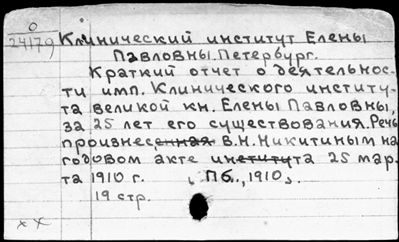 0
24179
Клинический институт Елены
Павловны. Петербург.
Краткий отчет о деятельнос-
ти имп. Клинического институ-
та великой кн. Елены Павловны,
за 25 лет его существования. Речь
произнесенная В.Н. Никитиным на
годовом акте института 25 мар.
та 1910 г. Пб., 1910.
19 стр.
xx